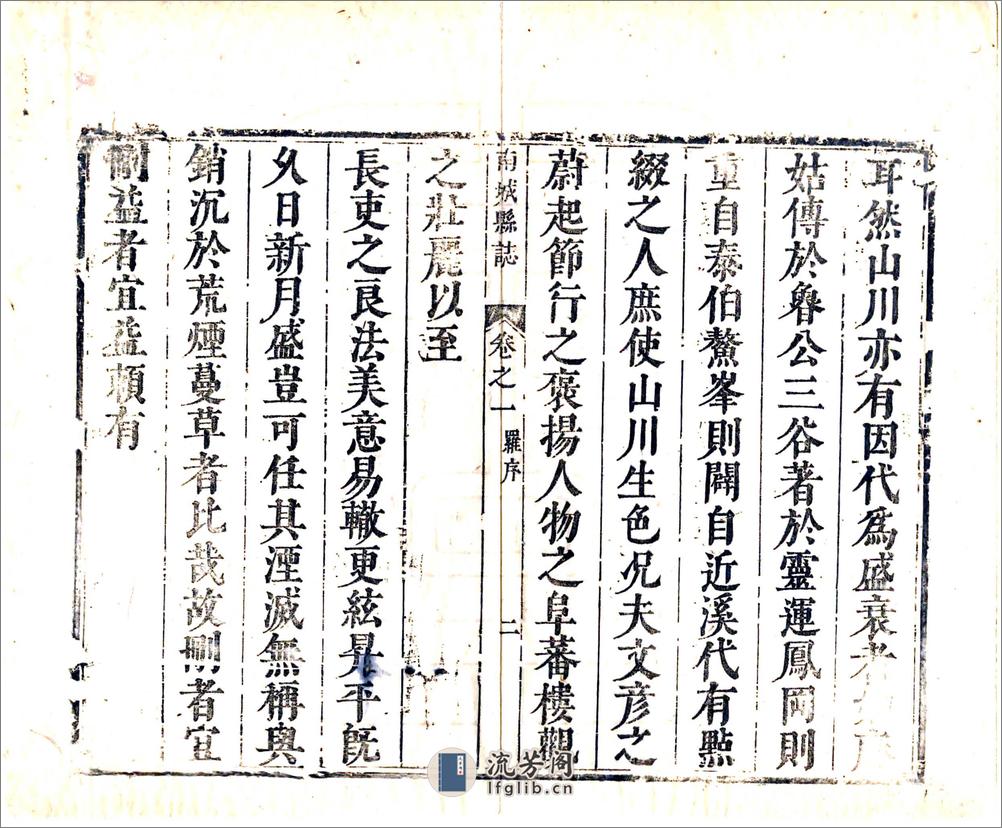 耳然山川亦有因代爲盛衰者
姑傳於魯公三谷著於靈運鳳岡則
重自泰伯鰲峯則闢自近溪代有點
綴之人庶使山川生色况夫文彦之
蔚起節行之褒揚人物之阜蕃樓觀
南城縣誌 卷之一 羅序 二
之壯麗以至
長吏之良法美意易轍更絃昇平旣
久日新月盛豈可任其湮滅無稱與
銷沉於荒煙蔓草者比哉故刪者宜
刪益者宜益頼有
流芳閣
lfglib.cn